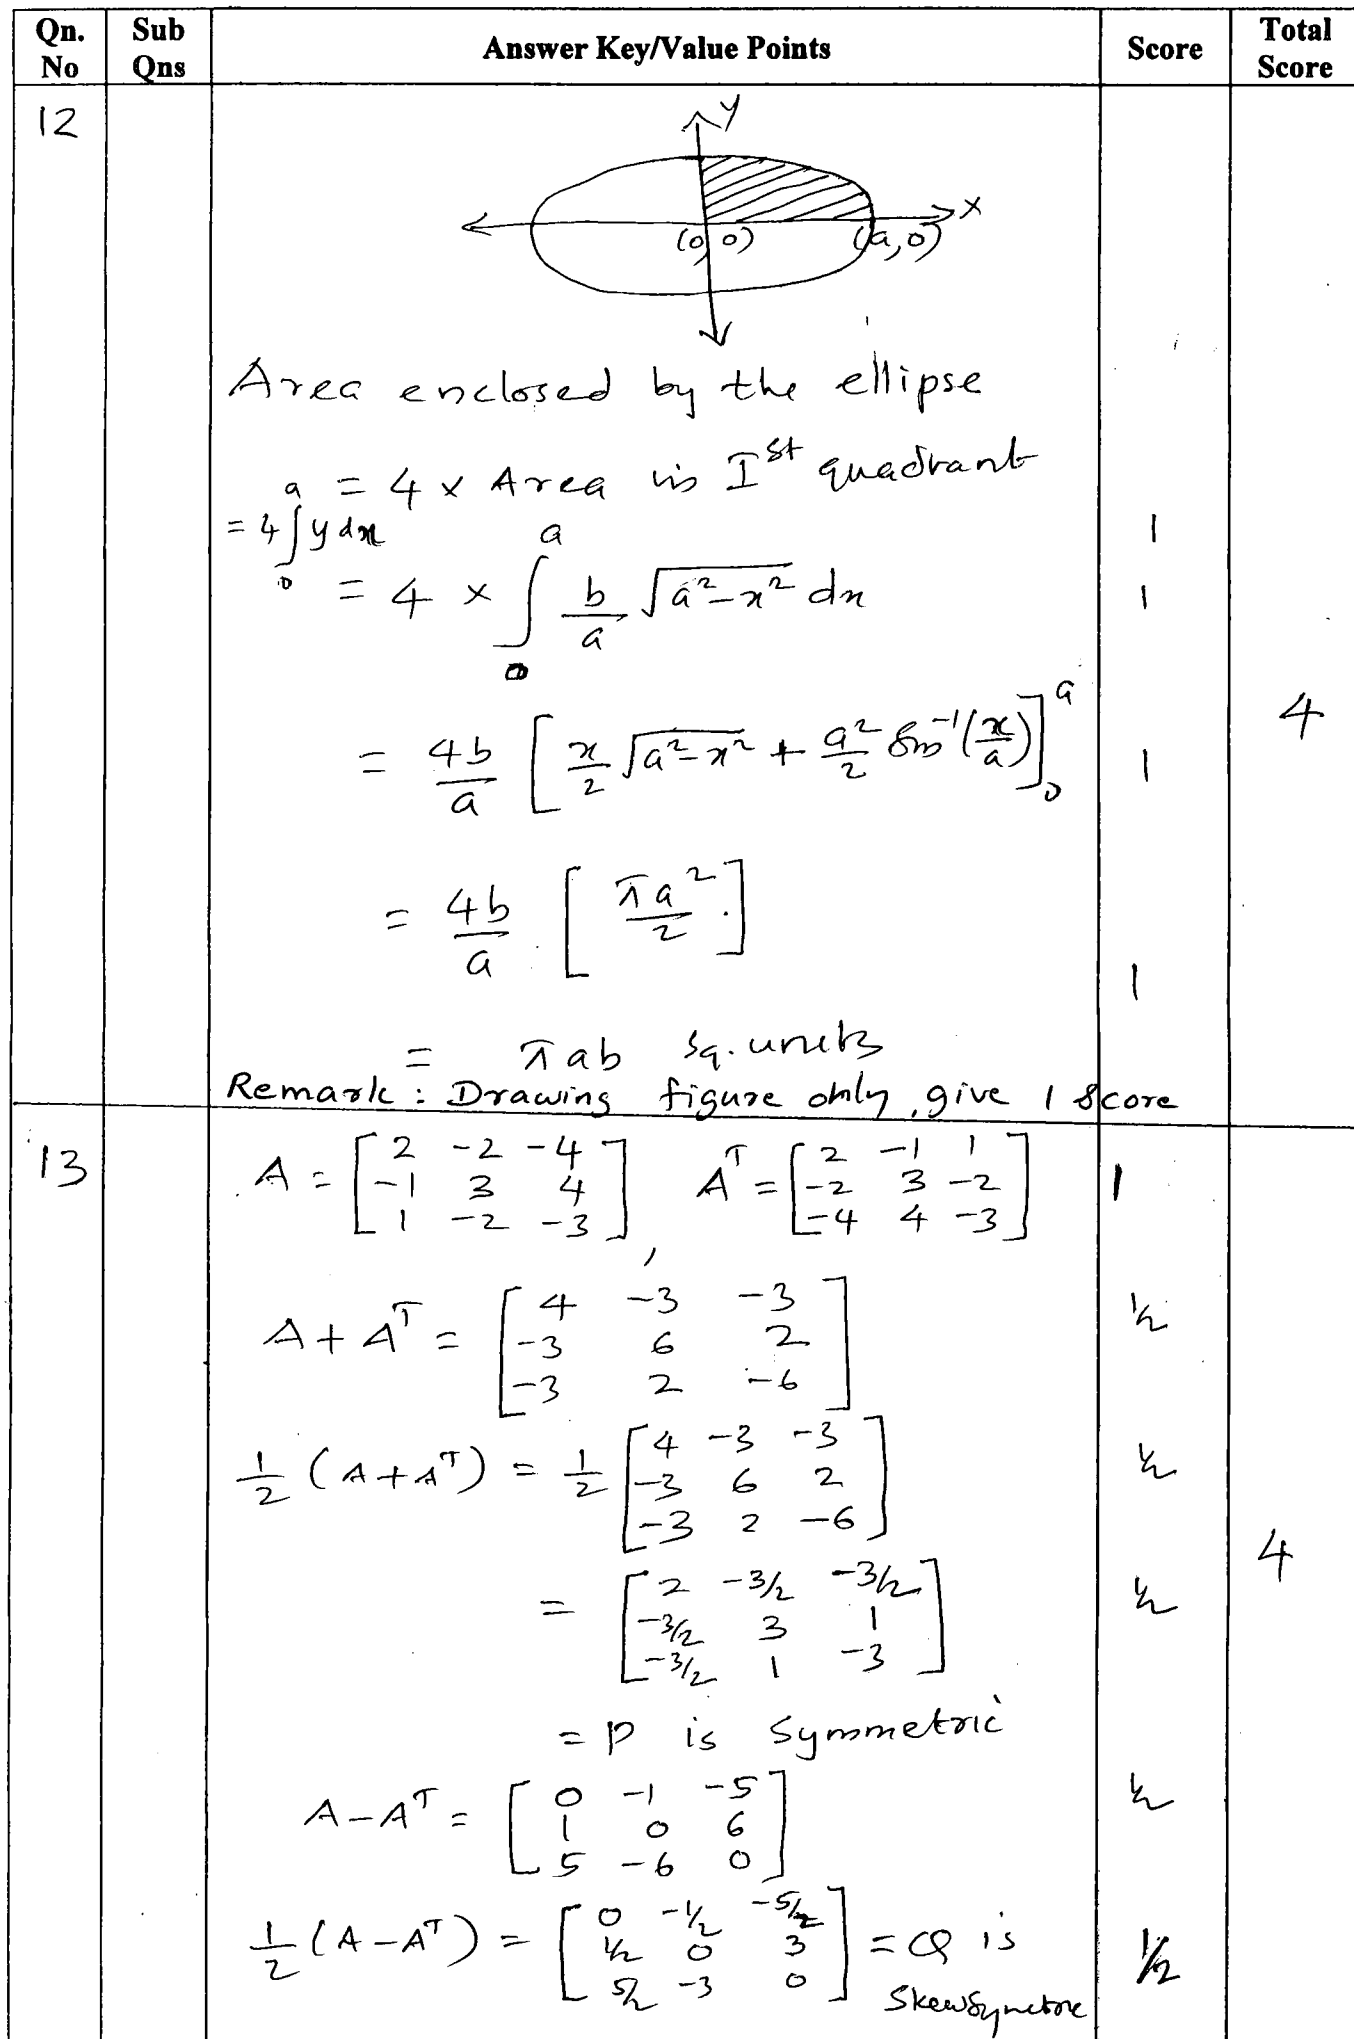 Qn. No Sub Qns Answer Key/Value Points Score Total Score
12
y
x
(0,0) (a,0)
Area enclosed by the ellipse
= 4 x Area in Ist quadrant
= 4 ∫₀ᵃ y dx 1
= 4 × ∫₀ᵃ b/a √(a²-x²) dx 1
= 4b/a [ x/2 √(a²-x²) + a²/2 sin⁻¹(x/a) ]₀ᵃ 1 4
= 4b/a [ πa²/2 ]
1
= πab sq. units
Remark : Drawing figure only, give 1 score
13 A = [2 -2 -4; -1 3 4; 1 -2 -3], Aᵀ = [2 -1 1; -2 3 -2; -4 4 -3] 1
A + Aᵀ = [4 -3 -3; -3 6 2; -3 2 -6] 1/2
1/2 (A+Aᵀ) = 1/2 [4 -3 -3; -3 6 2; -3 2 -6] 1/2
4
= [2 -3/2 -3/2; -3/2 3 1; -3/2 1 -3] 1/2
= P is symmetric
A-Aᵀ = [0 -1 -5; 1 0 6; 5 -6 0] 1/2
1/2 (A-Aᵀ) = [0 -1/2 -5/2; 1/2 0 3; 5/2 -3 0] = Q is 1/2
Skewsymetric